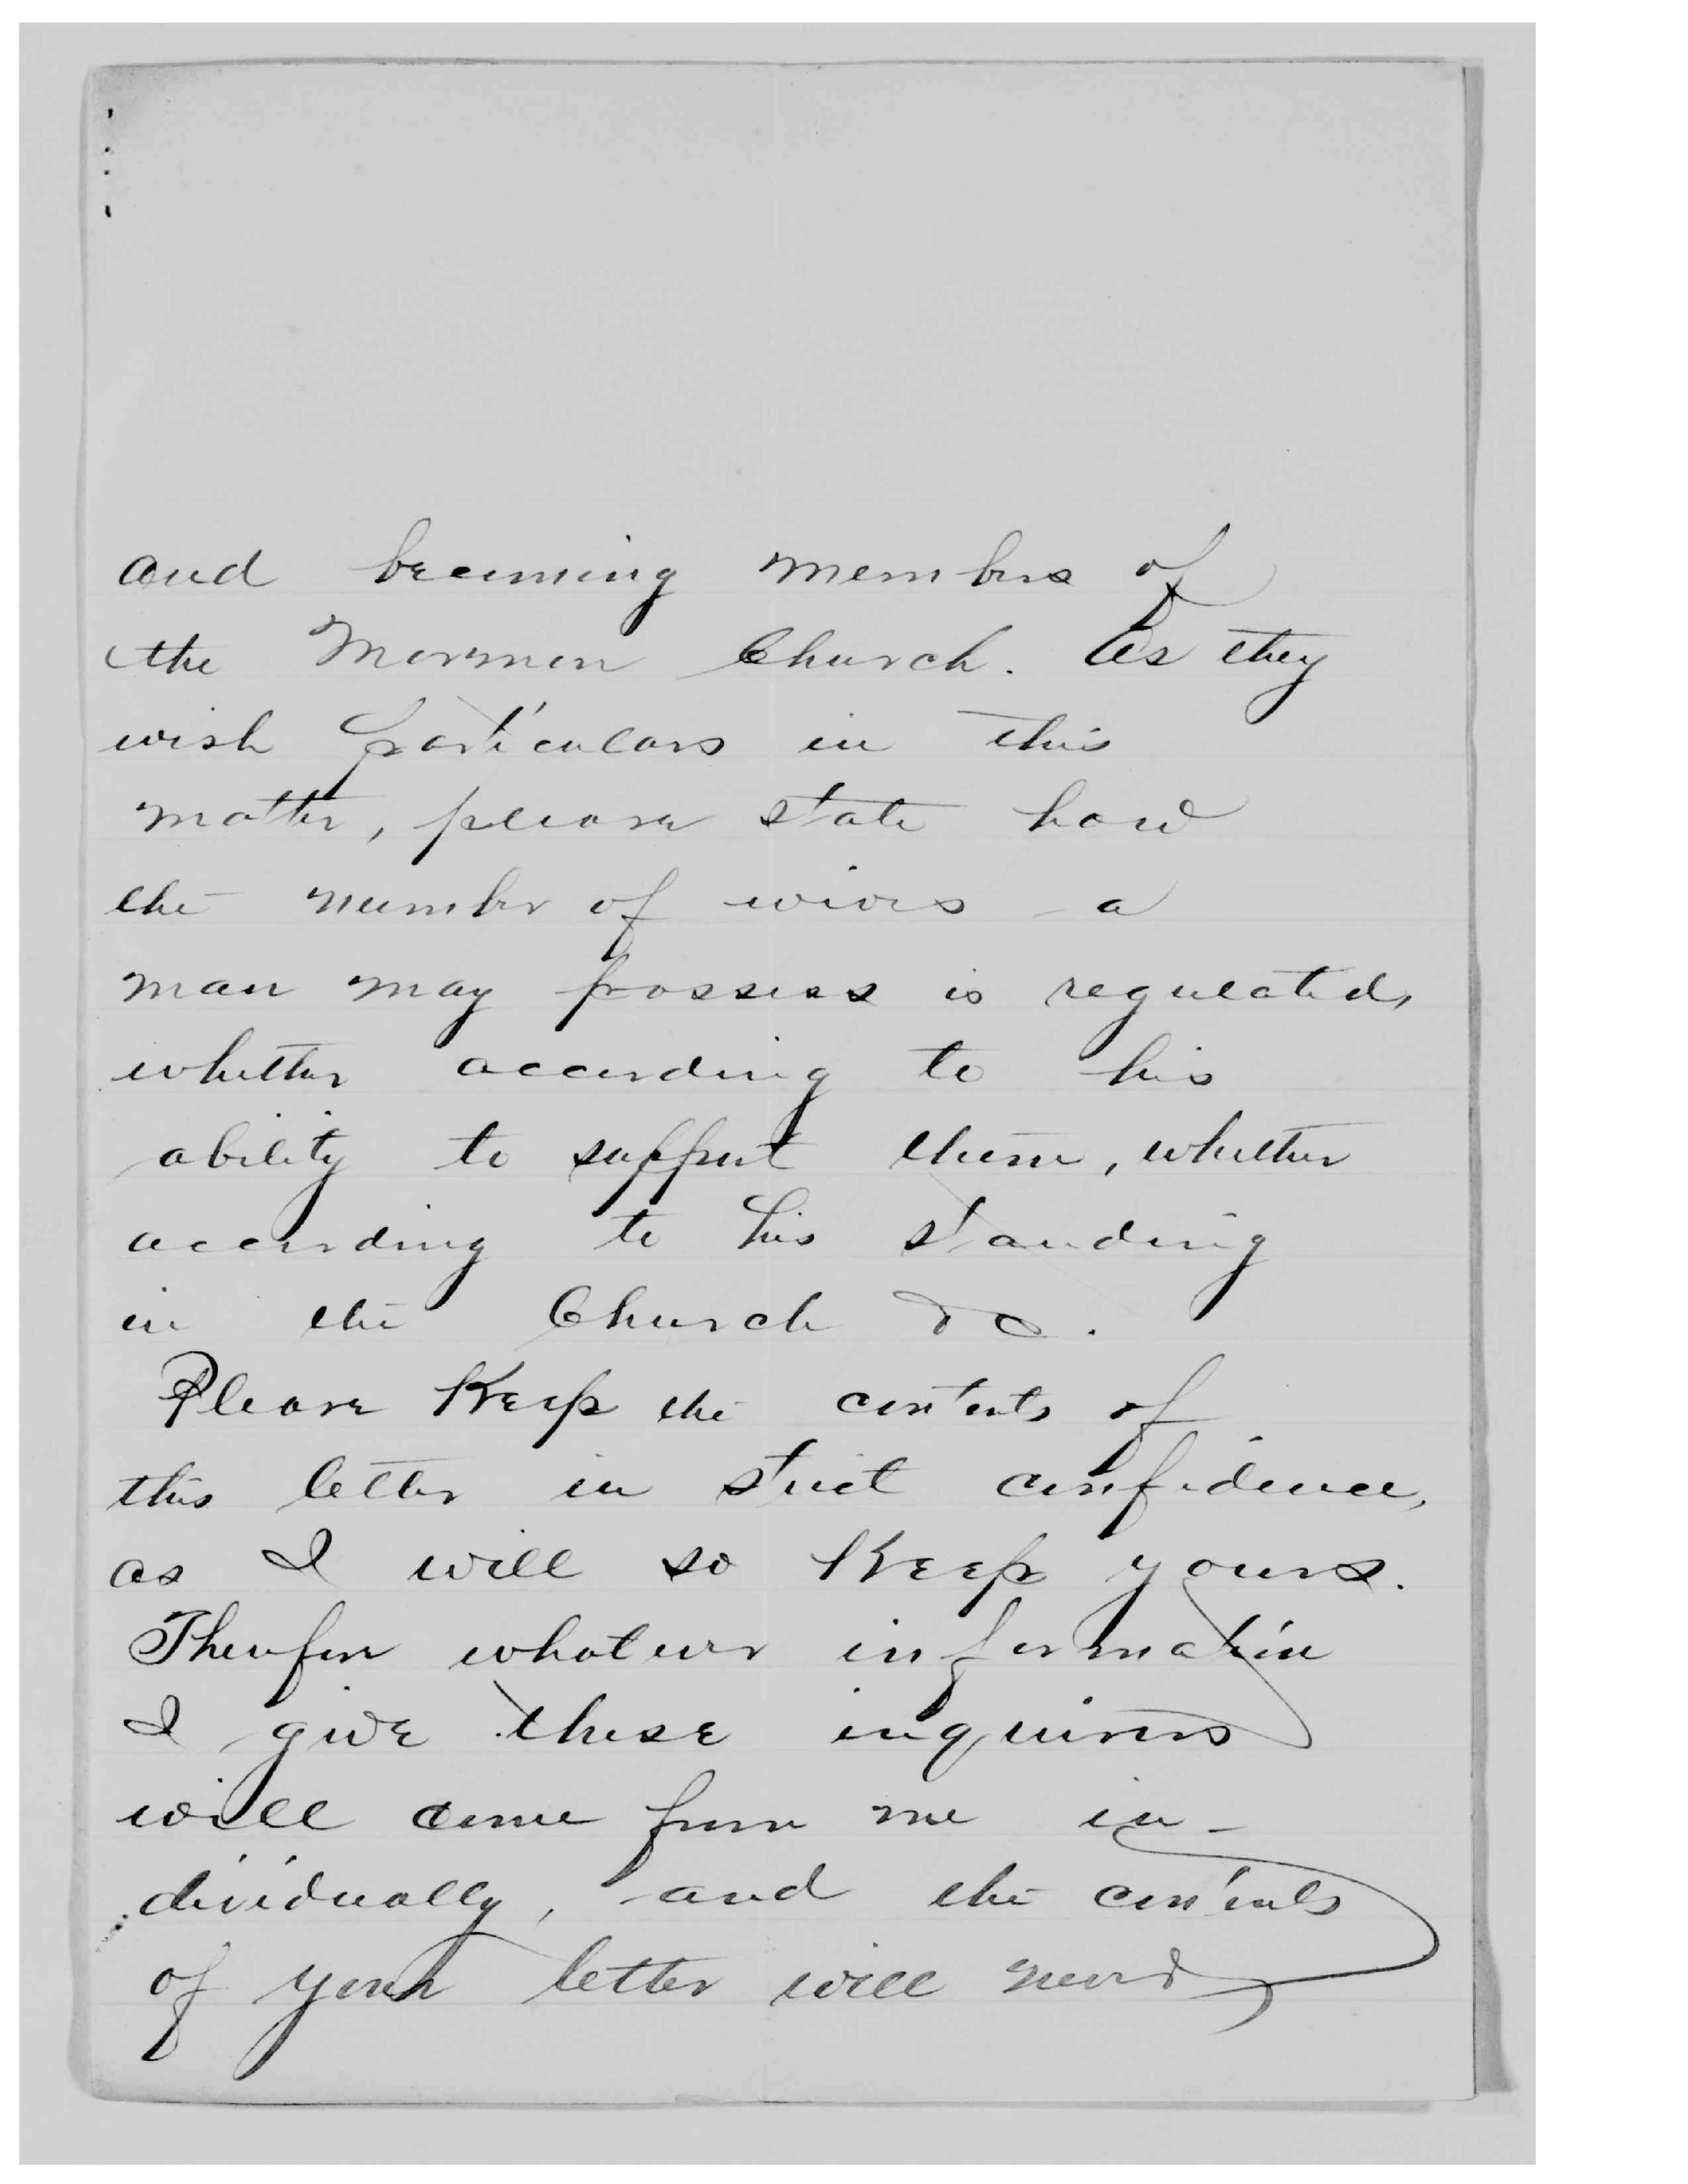 and becoming members of
the Mormon Church. As they
wish particulars in this
matter, please state how
the number of wives a
man may possess is regulated,
whether according to his
ability to support them, whether
according to his standing
in the Church &c.
Please Keep the contents of
this letter in strict confidence,
as I will so Keep yours.
Therefore whatever information
I give these inquirers
will come from me in-
dividually, and the contents
of your letter will never